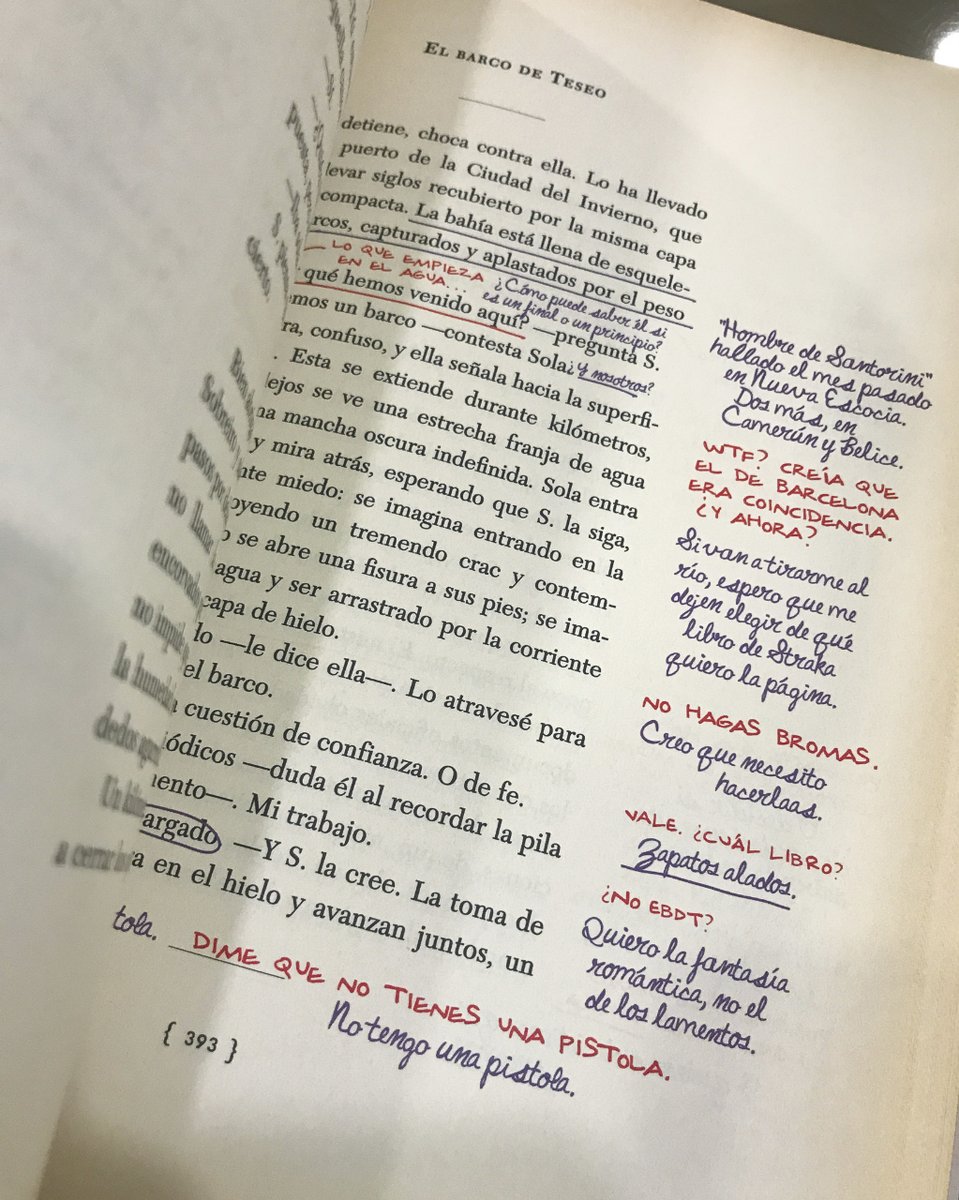 EL BARCO DE TESEO
detiene, choca contra ella. Lo ha llevado
puerto de la Ciudad del Invierno, que
levar siglos recubierto por la misma capa
compacta. La bahía está llena de esquele-
rcos, capturados y aplastados por el peso
— LO QUE EMPIEZA
EN EL AGUA...
¿Cómo puede saber él si
es un final o un principio?
qué hemos venido aquí? —pregunta S.
mos un barco —contesta Sola
¿Y nosotros?
ra, confuso, y ella señala hacia la superfi-
. Esta se extiende durante kilómetros,
lejos se ve una estrecha franja de agua
na mancha oscura indefinida. Sola entra
y mira atrás, esperando que S. la siga,
nte miedo: se imagina entrando en la
oyendo un tremendo crac y contem-
o se abre una fisura a sus pies; se ima-
agua y ser arrastrado por la corriente
capa de hielo.
lo —le dice ella—. Lo atravesé para
el barco.
cuestión de confianza. O de fe.
ódicos —duda él al recordar la pila
ento—. Mi trabajo.
argado. —Y S. la cree. La toma de
a en el hielo y avanzan juntos, un
"Hombre de Santorini"
hallado el mes pasado
en Nueva Escocia.
Dos más, en
Camerún y Belice.
WTF? CREÍA QUE
EL DE BARCELONA
ERA COINCIDENCIA.
¿Y AHORA?
Si van a tirarme al
río, espero que me
dejen elegir de qué
libro de Straka
quiero la página.
NO HAGAS BROMAS.
Creo que necesito
hacerlaas.
VALE. ¿CUÁL LIBRO?
Zapatos alados.
¿NO EBDT?
Quiero la fantasía
romántica, no el
de los lamentos.
tola. DIME QUE NO TIENES UNA PISTOLA.
No tengo una pistola.
{ 393 }
pasos por
no llama
encorvado
no impide
la humeda
dedos
a cerrar